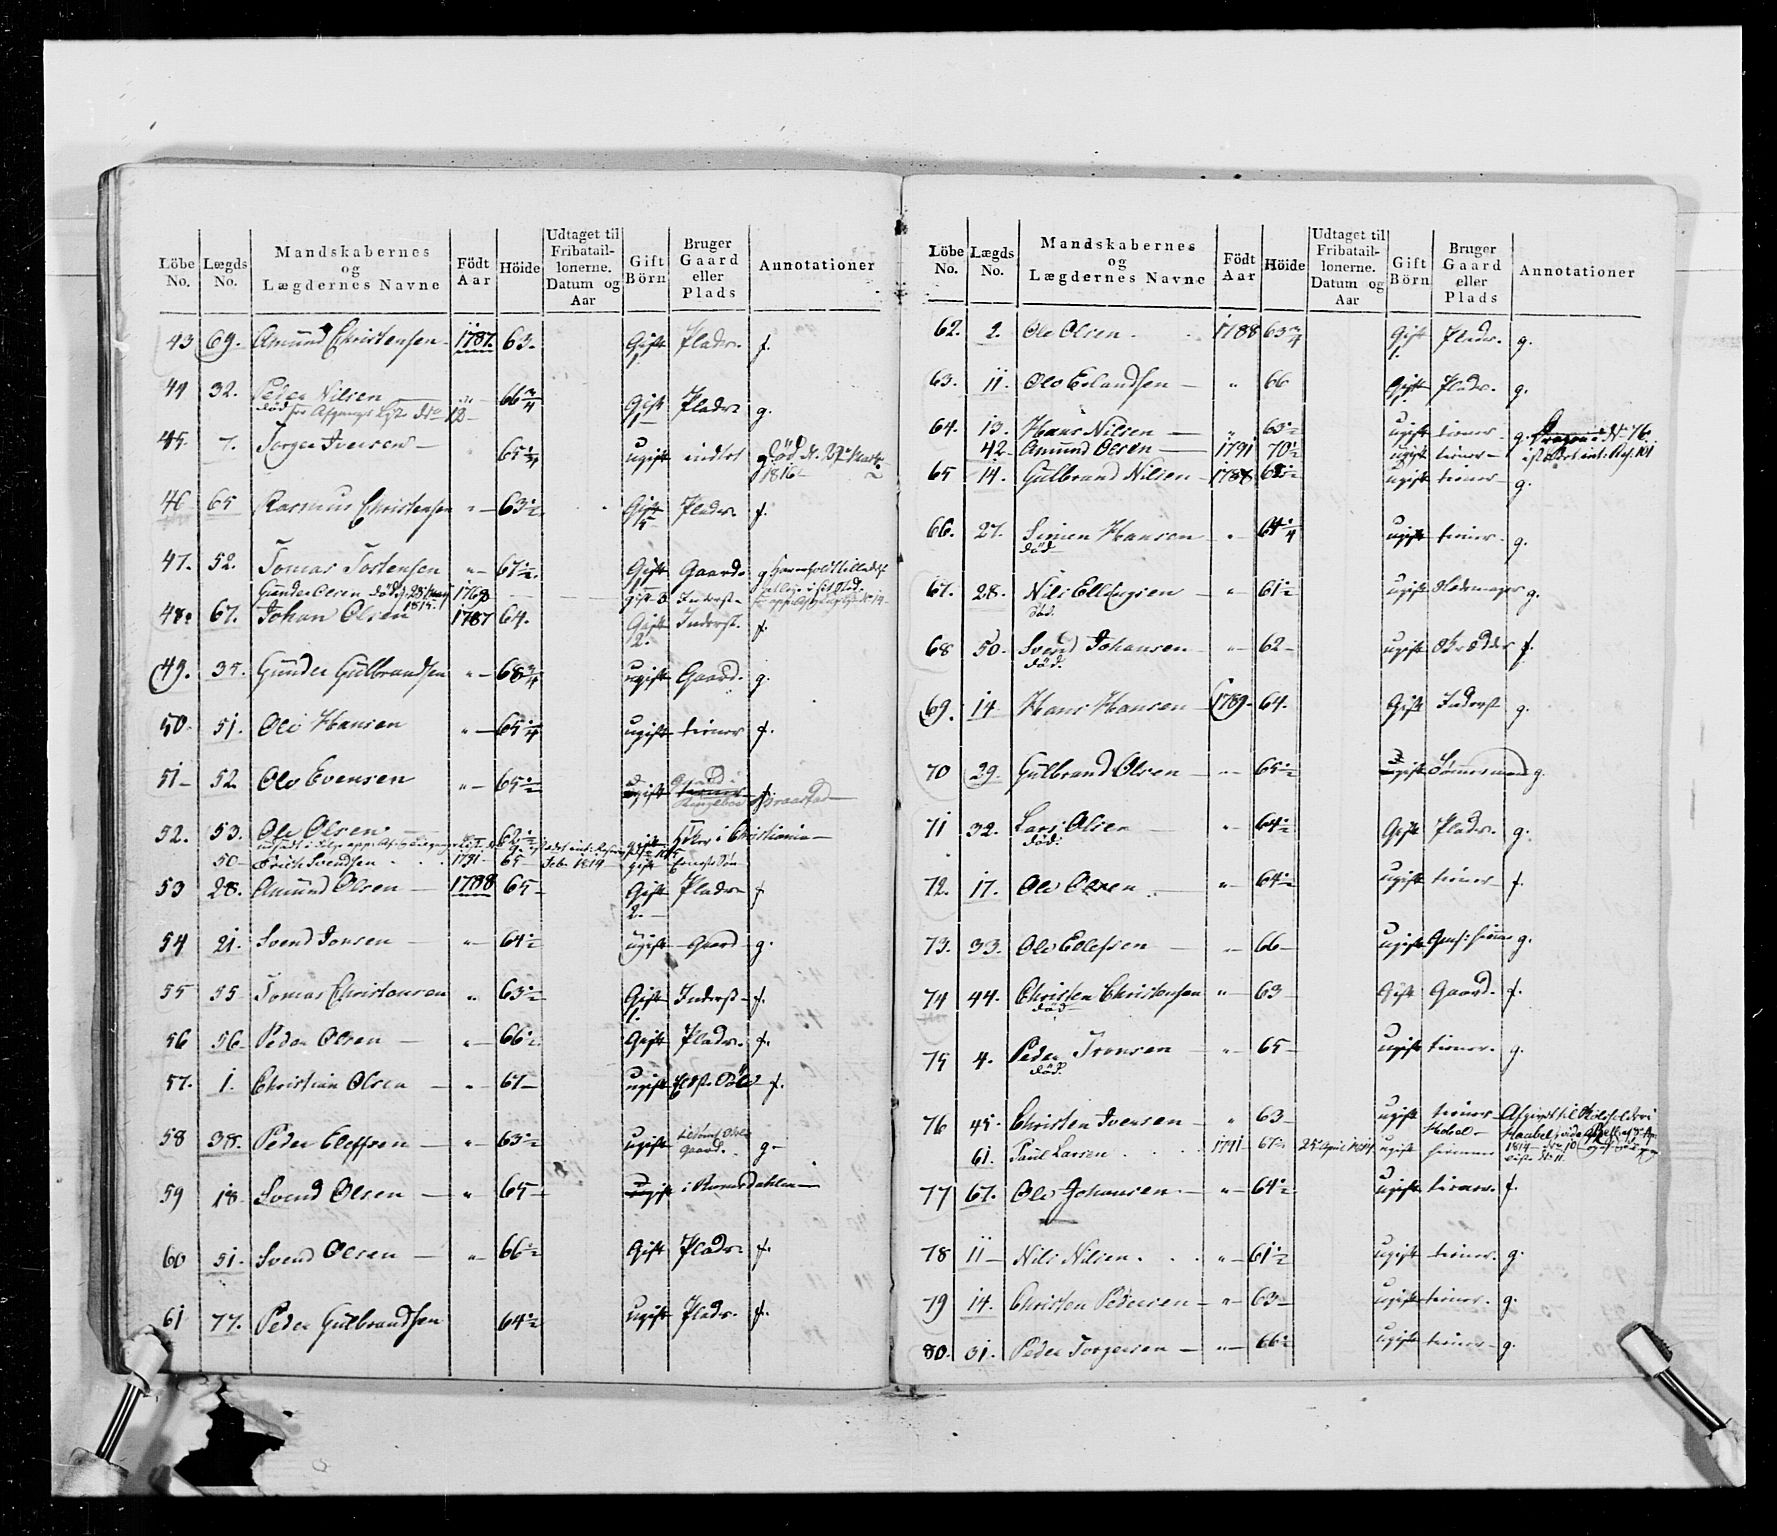 Löbe No. Lægds No. Mandskabernes og Lægdernes Navne Födt Aar Höide Udtaget til Fribataillonerne. Datum og Aar Gift Börn Bruger Gaard eller Plads Annotationer
43 69. Amund Christensen 1787. 63. Gift 1. Plads. f.
44 32. Peder Nilsen „ 66 3/4 Gift 1 Plads g.
død
45. 7. Torger Iversen „ 65 1/4 ugift indtet død d. 29 Marts 1816
46 65 Rasmus Christensen „ 63 1/2 Gift 5 Plads. f.
47. 52. Tomas Tostensen „ 67 1/2. Gift Gaard. g
Gunder Olsen død 1815. 1768 gift 3 Inderst
48. 67. Johan Olsen 1787 64. Gift 2. Inderst. f.
49. 35. Gunder Gulbrandsen „ 68 3/4 ugift Gaard. g.
50. 51. Ole Hansen „ 65 1/4 ugift tiener f.
51 52. Ole Evensen „ 65 1/2 ugift tiener f.
52. 53. Ole Olsen „ 62 1/2 i Christiania
50 Erich Svendsen 1791 65 Febr 1814 gift
53 28. Amund Olsen 1788 65 Gift 2. Plads f
54 21. Svend Jonsen „ 64 1/2 ugift Gaard g.
55 55 Tomas Christensen „ 63 1/2 Gift 1. Inderst f.
56 56 Peder Olsen „ 66 1/2 Gift Plads. f.
57. 1. Christian Olsen „ 67 ugift f.
58 38. Peder Elefsen „ 63 1/2 ugift Gaard. g
59 18 Svend Olsen „ 65 ugift i Romsdahlen
60 51. Svend Olsen „ 66 1/2 Gift Plads f.
61 77. Peder Gulbrandsen 64 1/2 ugift Plads. f.
Löbe No. Lægds No. Mandskabernes og Lægdernes Navne Födt Aar Höide Udtaget til Fribataillonerne. Datum og Aar Gift Börn Bruger Gaard eller Plads Annotationer
62. 2. Ole Olsen. 1788 63 3/4 Gift 1. Plads. g.
63. 11. Ole Erlandsen „ 66 Gift 1. Plads. g.
64. 13. Hans Nilsen „ 63 1/2 ugift tiener. g.
42 Amund Olsen 1791 70 1/2 ugift tiener
65 14. Gulbrand Nilsen 1788 62 1/2 ugift tiener g.
66. 27. Simen Hansen „ 64 1/4 ugift tiener. g.
død
67. 28. Nils Ellingsen „ 61 1/2 ugift g.
død.
68 50. Svend Johansen „ 62 ugift f.
død.
69. 14 Hans Hansen 1789. 64. Gift Inderst g.
70 29. Gulbrand Olsen „ 65 1/2 ugift Tømmermand g.
71 32. Lars Olsen „ 64 1/2 Gift Plads. g.
død.
72. 17. Ole Olsen „ 64 1/2 ugift tiener f.
73. 33. Ole Ellefsen „ 66 ugift g.
74 44. Christen Christensen „ 63 Gift Gaard. f.
død
75 4. Peder Tronsen „ 65 ugift tiener. g.
død.
76 45. Christen Iversen „ 63 ugift tiener
61. Paul Larsen 1791 67 1/2 25 April 1814 ugift hiemme
77 67. Ole Johansen. „ 64 1/2 ugift tiener. f.
78 11 Nils Nilsen. „ 61 1/2 ugift tiener. g.
79 14. Christen Pedersen „ 63 ugift tiener. g.
80. 31. Peder Torgersen „ 66 1/2 ugift tiener g.